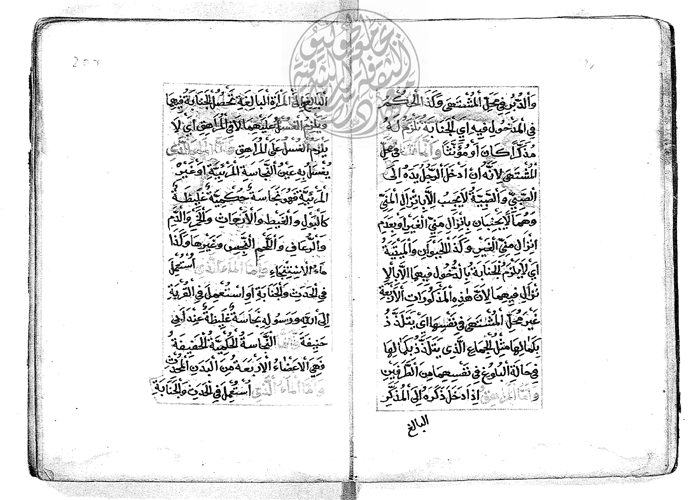 والدبر في محل المشتهى وكذا الحكم
في المدخول فيه اي الجنابة تلزم له
مذكرا كان او مؤنثا وانما في محل
المشتهى لانه ان ادخل الرجل يده الى
الصبي والصبية لا يجب الا بانزال المني
وهما لا يجنبان بانزال مني الغير او بعدم
انزال مني النفس وكذا الحيوان والميتة
اي لا يلزم الجنابة بالدخول فيهما الا بالا
نزال فيهما لان هذه المذكورات الاربعة
غير محل المشتهى في نفسها اي يتلذذ
بكمالها مثل الجماع الذي يتلذذ بكمالها
في حالة البلوغ في نفسهما من الطرفين
واما المراهق اذا دخل ذكره الى المذكر
البالغ
البالغ او الى المراة البالغة تحصل الجنابة فيها
ويلزم الغسل عليهما لا في المراهق اي لا
يلزم الغسل على المراهق الذي
يغسل به عين النجاسة المرئية او غير
المرئية فهو نجاسة حكمية غليظة
كالبول والغيط والارجاث والخمر والدم
والرعاف واللحم النجس وغيرها وكذا
ماء الاستنجاء واما الماء الذي استعمل
في الحدث والجنابة او استعمل في القربة
الى الله ورسوله نجاسة غليظة عند ابي
حنيفة النجاسة الحكمية الخفيفة
وهي الاعضاء الاربعة من البدن المحدث
واما الماء الذي استعمل في الحدث والجنابة